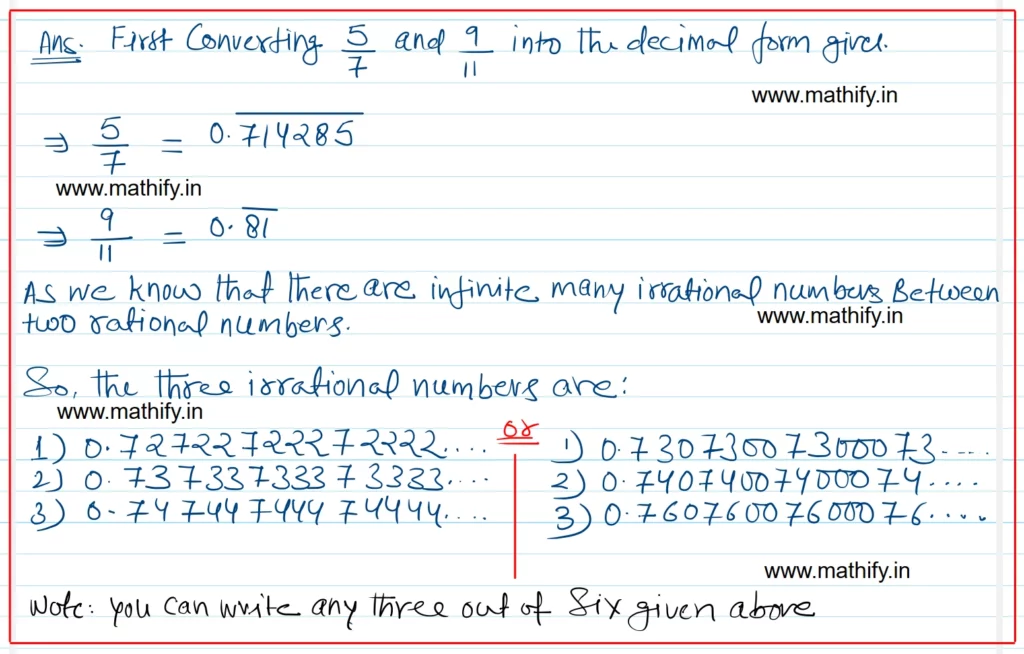 Ans. First Converting 5/7 and 9/11 into the decimal form gives.
www.mathify.in
⇒ 5/7 = 0.7̅1̅4̅2̅8̅5̅
www.mathify.in
⇒ 9/11 = 0.8̅1̅
As we know that there are infinite many irrational numbers Between
two rational numbers.
www.mathify.in
So, the three irrational numbers are:
www.mathify.in
1) 0.72722722272222....
2) 0.73733733373333....
3) 0.74744744474444....
or
1) 0.73073007300073....
2) 0.74074007400074....
3) 0.76076007600076....
www.mathify.in
Note: you can write any three out of Six given above